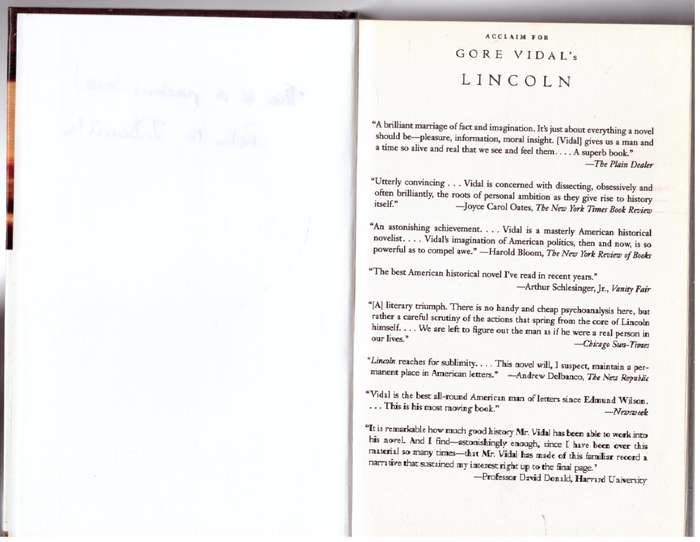 ACCLAIM FOR
GORE VIDAL's
LINCOLN
"A brilliant marriage of fact and imagination. It's just about everything a novel
should be—pleasure, information, moral insight. [Vidal] gives us a man and
a time so alive and real that we see and feel them. . . . A superb book."
—The Plain Dealer
"Utterly convincing . . . Vidal is concerned with dissecting, obsessively and
often brilliantly, the roots of personal ambition as they give rise to history
itself." —Joyce Carol Oates, The New York Times Book Review
"An astonishing achievement. . . . Vidal is a masterly American historical
novelist. . . . Vidal's imagination of American politics, then and now, is so
powerful as to compel awe." —Harold Bloom, The New York Review of Books
"The best American historical novel I've read in recent years."
—Arthur Schlesinger, Jr., Vanity Fair
"[A] literary triumph. There is no handy and cheap psychoanalysis here, but
rather a careful scrutiny of the actions that spring from the core of Lincoln
himself. . . . We are left to figure out the man as if he were a real person in
our lives." —Chicago Sun-Times
"Lincoln reaches for sublimity. . . . This novel will, I suspect, maintain a per-
manent place in American letters." —Andrew Delbanco, The New Republic
"Vidal is the best all-round American man of letters since Edmund Wilson.
. . . This is his most moving book." —Newsweek
"It is remarkable how much good history Mr. Vidal has been able to work into
his novel. And I find—astonishingly enough, since I have been over this
material so many times—that Mr. Vidal has made of this familiar record a
narrative that sustained my interest right up to the final page."
—Professor David Donald, Harvard University